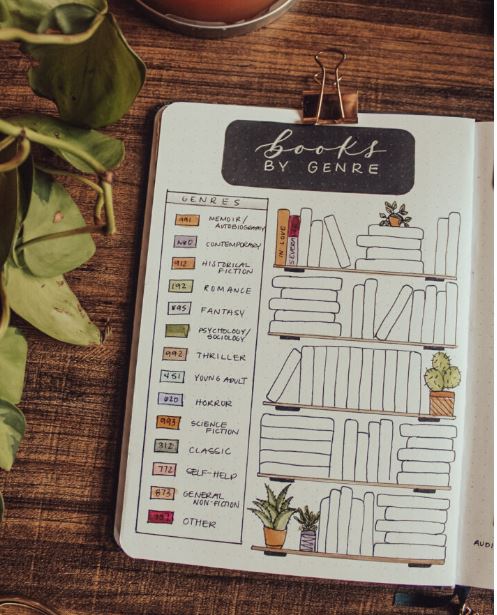 books
BY GENRE
GENRES
991 MEMOIR/
AUTOBIOGRAPHY
N60 CONTEMPORARY
912 HISTORICAL
FICTION
192 ROMANCE
895 FANTASY
PSYCHOLOGY/
SOCIOLOGY
992 THRILLER
451 YOUNG ADULT
620 HORROR
993 SCIENCE
FICTION
312 CLASSIC
772 SELF-HELP
873 GENERAL
NON-FICTION
OTHER
IN LOVE
AUDI